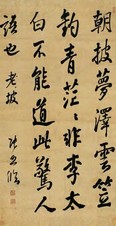 朝披夢澤雲笠
釣青茫茫非李太
白不能道此驚人
語也　老坡
張照臨